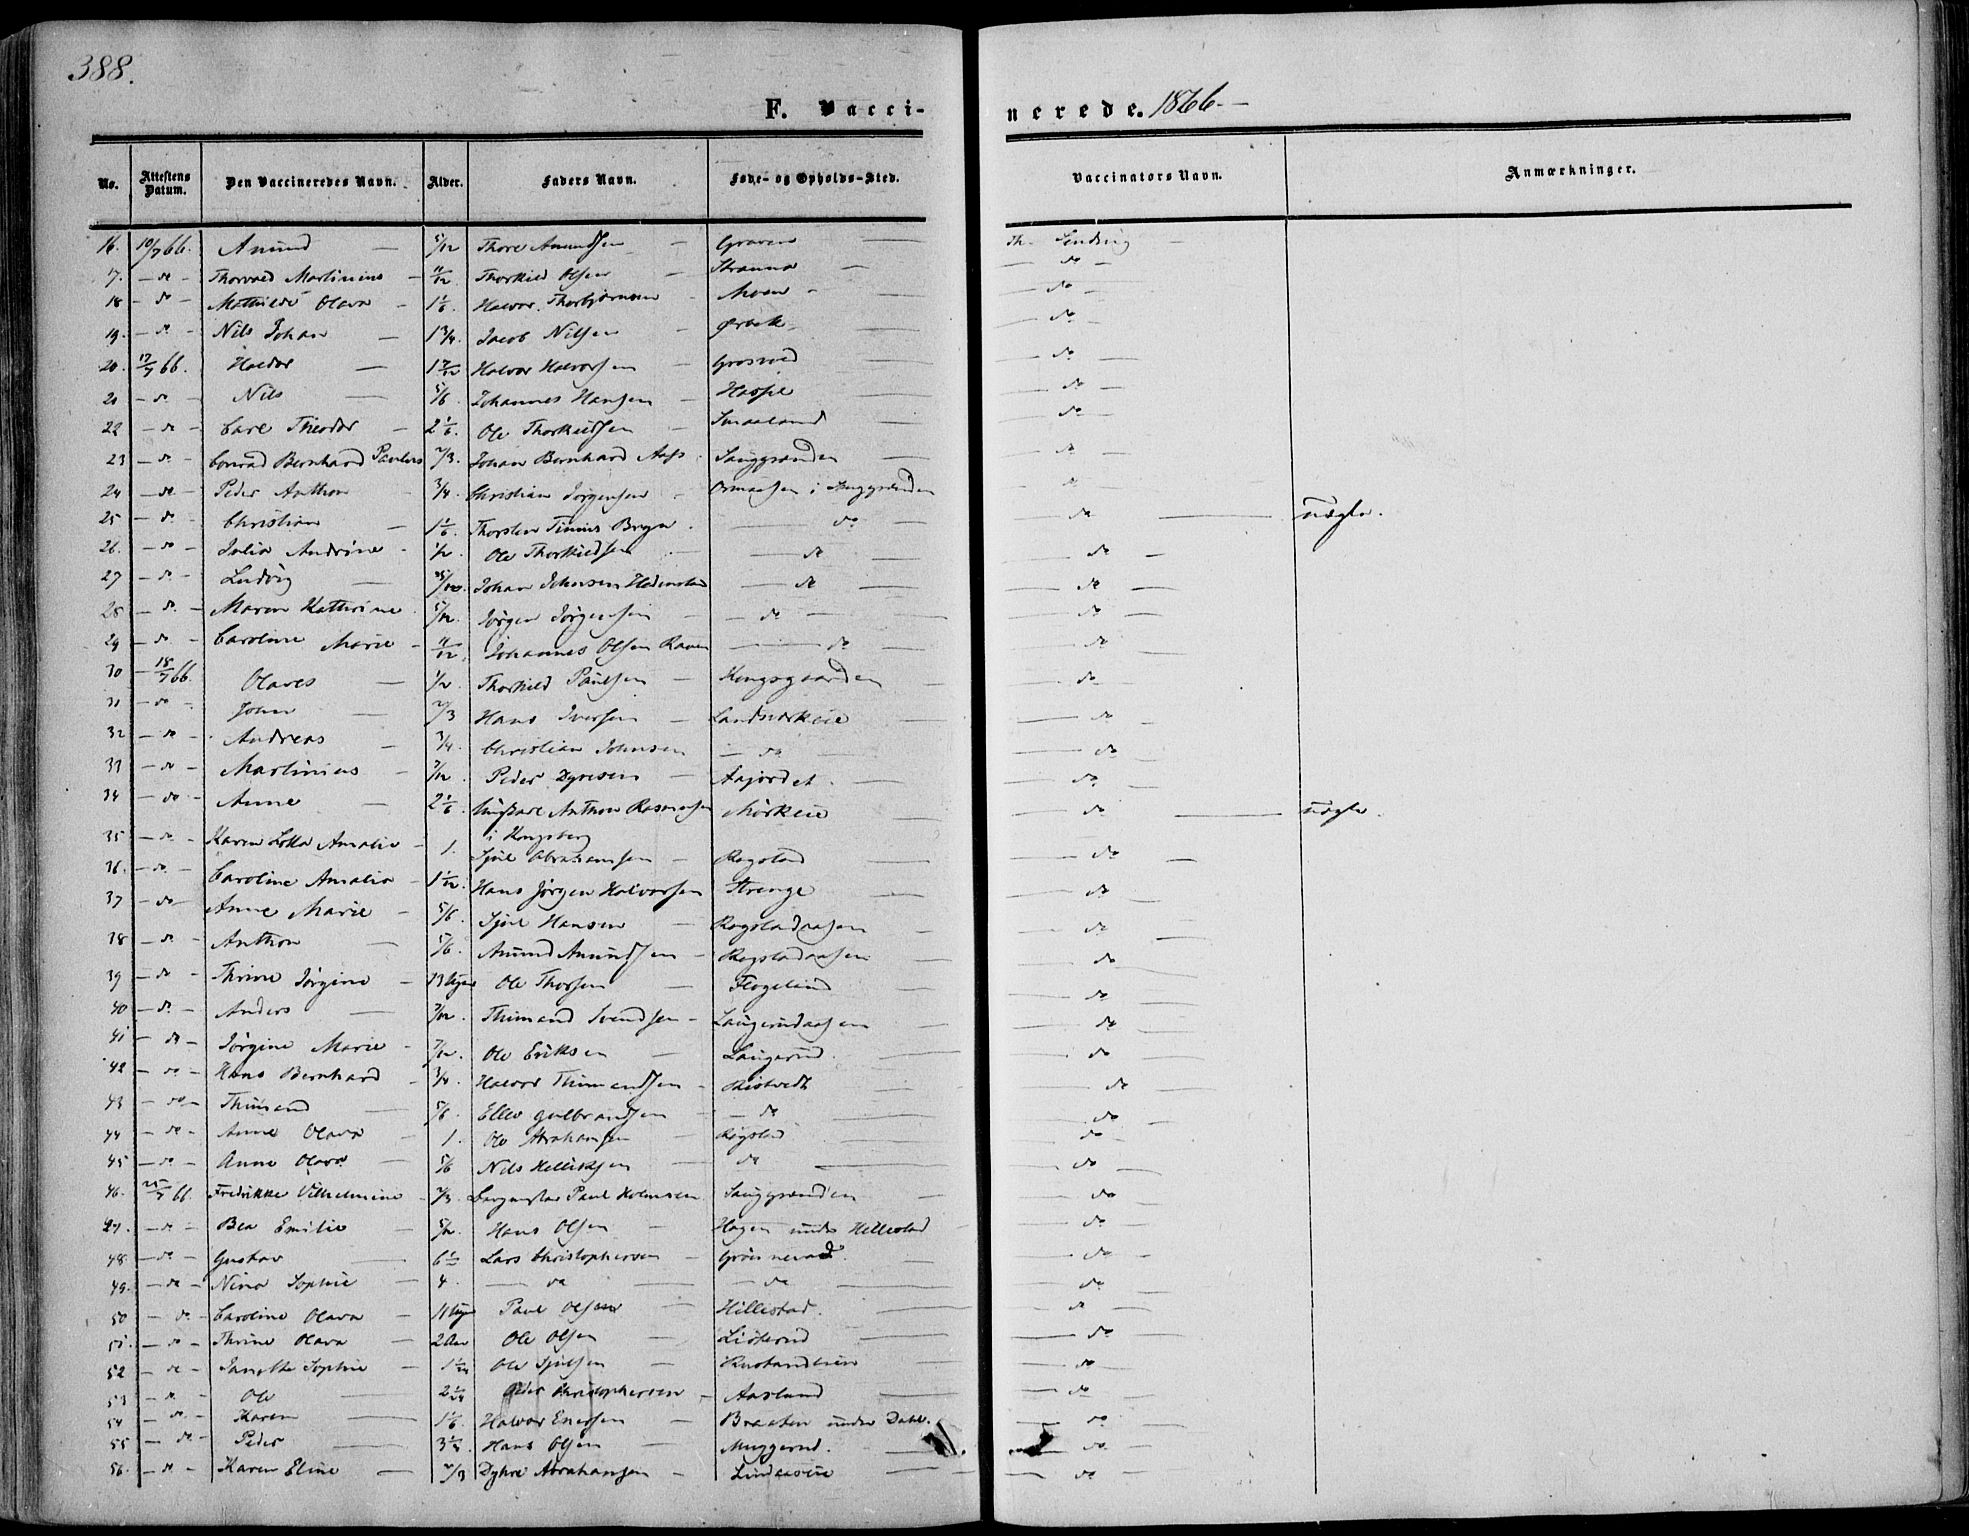 388.
F. Vacci-
nerede. 1866.-
No. | Attestens Datum. | Den Vaccineredes Navn. | Alder. | Faders Navn. | Føde- og Opholds-Sted. | Vaccinators Navn. | Anmærkninger.
16. | 10/7 66. | Amund | 5/12 | Thore Amundsen | Graven | Th.
17. | do | Thorvald Martinius | 11/12 | Thorkild Olsen | Stranna | do
18 | do | Mathilde Olava | 1 1/6. | Halvor Thorbjørnsen | Moen | do
19. | do | Nils Johan | 1 3/4. | Jacob Nilsen | Ørvik | do
20. | 17/7 66. | Halvor | 1 7/12 | Halvor Halvorsen | Grosved | do
21 | do | Nils | 5/6 | Johannes Hansen | Hassel | do
22 | do | Carl Theodor | 2 1/6. | Ole Thorkildsen | Smaaland | do
23 | do | Conrad Bernhard | 2/3. | Johan Bernhard | Sauggrenden | do
24 | do | Peder Anthon | 3/4. | Christian Jørgensen | i Sauggrenden | do
25 | do | Christian | 1 1/6. | Thorsten Bryn | do | do | Uægte.
26. | do | Julia Andrine | 1/2. | Ole Thorkildsen | do | do
27 | do | Ludvig | Johan Johnsen Hedenstad | do | do
28 | do | Maren Kathrine | 5/12. | Jørgen Jørgensen | do | do
29 | do | Caroline Marie | 11/12. | Johannes Olsen Raven | do | do
30 | 18/7 66. | Olaves | 1/2. | Thorkild Paulsen | Kongsgaarden | do
31 | do | John | 2/3 | Hans Iversen | do
32 | do | Andreas | 3/4. | Christian Johnsen | do | do
33 | do | Martinius | 7/12. | Peder Dyresen | Aajordet | do
34 | do | Anne | 2 1/6. | Anthon Rasmussen | Mørkeie | do | Uægte.
i Kongsberg
35 | do | Karen Lotta Amalie | 1. | Sjul Abrahamsen | Rogstad | do
36. | do | Caroline Amalia | 1 1/12. | Hans Jørgen Halvorsen | Strenge | do
37 | do | Anne Marie | 5/6. | Sjul Hansen | Rogstadaasen | do
38 | do | Anthon | 5/6. | Amund Amundsen | Rogstadaasen | do
39 | do | Thrine Jørgine | 13 Uger | Ole Thorsen | Flogelund | do
40 | do | Anders | 7/12. | Thimand Svendsen | Laugerudaasen | do
41 | do | Jørgine Marie | 7/12. | Ole Eriksen | Laugerud. | do
42 | do | Hans Bernhard | 3/4. | Halvor Thimandsen | Ristvedt | do
43 | do | Thimand | 5/6. | Ellev Gulbrandsen | do | do
44 | do | Anne Olava | 1. | Ole Abrahamsen | Rogstad | do
45 | do | Anne Olava | 5/6 | Nils Helliksen | do | do
46. | 25/7 66 | Fredrikke Vilhelmine | 2/3. | Paul Holmsen | Sauggrenden | do
47. | do | Bea Emilie | 5/12. | Hans Olsen | Hagen under Hillestad | do
48 | do | Gustav | 6 1/2 | Lars Christophersen | do
49. | do | Nina Sophie | 4. | do | do | do
50 | do | Caroline Olava | 11 Uger | Paul Olsen | Hillestad. | do
51. | do | Thrine Olava | 2 Aar | Ole Olsen | Listerud | do
52 | do | Janette Sophie | Ole Sjulsen | do
53 | do | Ole | Peder Christophersen | Aasland | do
54 | do | Karen | 1 1/6. | Halvor Enersen | Braaten under Dahl. | do
55 | do | Peder | Hans Olsen | Muggerud. | do
56. | do | Karen Eline | 2/3 | Dyhre Abrahamsen | Lindaaseie | do